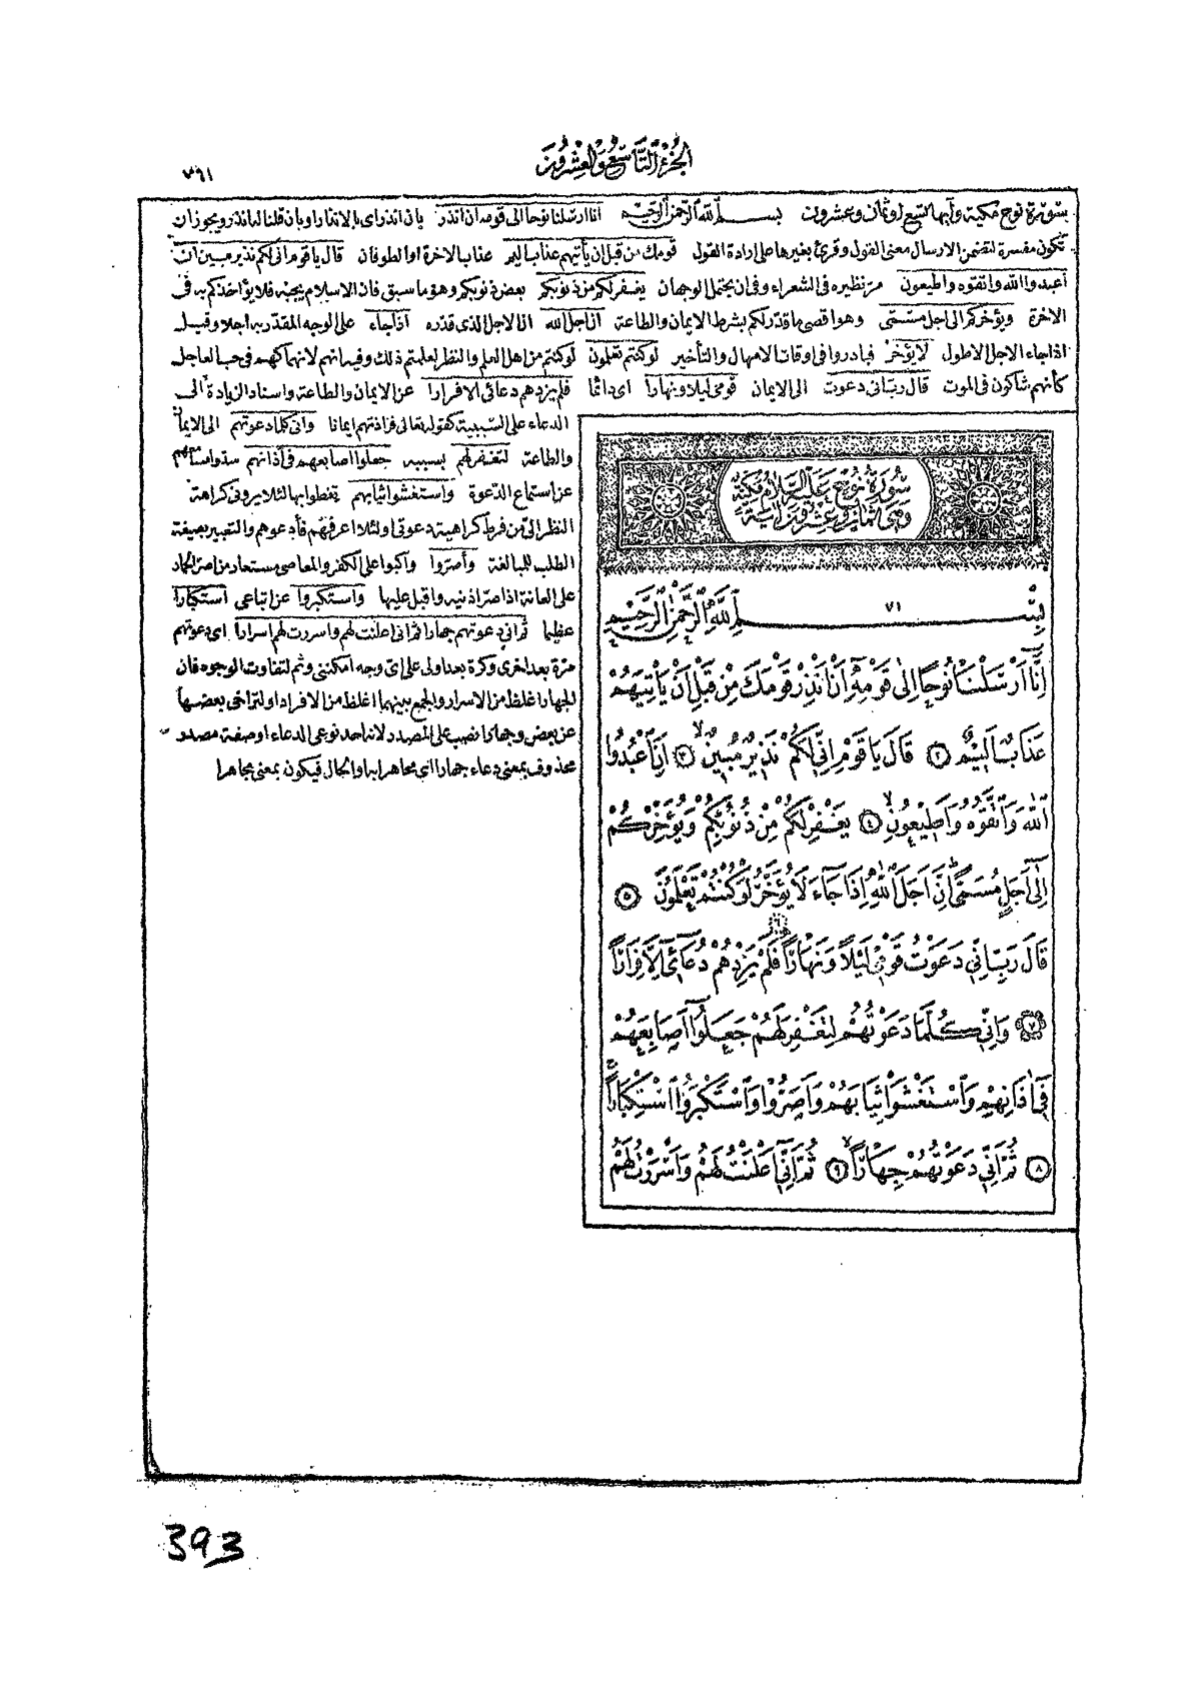 الجزء التاسع والعشرون
٧٦١
سورة نوح مكية وآيها تسع او ثمان وعشرون بسم الله الرحمن الرحيم انا ارسلنا نوحا الى قومه ان انذر بان انذر اى بالانذار او بان قلنا له انذر ويجوز ان
تكون مفسرة لتضمن الارسال معنى القول وقرئ بغيرها على ارادة القول قومك من قبل ان يأتيهم عذاب اليم عذاب الاخرة او الطوفان قال ياقوم انى لكم نذير مبين ان
أعبدوا الله واتقوه واطيعون مر نظيره فى الشعراء وفى ان يحتمل الوجهان يغفر لكم من ذنوبكم بعض ذنوبكم وهو ما سبق فان الاسلام يجبه فلا يؤاخذكم به فى
الاخرة ويؤخركم الى اجل مسمى وهو اقصى ما قدر لكم بشرط الايمان والطاعة ان اجل الله ان الاجل الذى قدره اذا جاء على الوجه المقدر به اجلا وقيل
اذا جاء الاجل الاطول لا يؤخر فبادروا فى اوقات الامهال والتأخير لو كنتم تعلمون لو كنتم من اهل العلم والنظر لعلمتم ذلك وفيه انهم لانهماكهم فى حب العاجل
كأنهم شاكون فى الموت قال رب انى دعوت الى الايمان قومى ليلا ونهارا اى دائما فلم يزدهم دعائى الا فرارا عن الايمان والطاعة واسناد الزيادة الى
الدعاء على السببية كقوله تعالى فزادتهم ايمانا وانى كلما دعوتهم الى الايما
والطاعة لتغفر لهم بسببه جعلوا اصابعهم فى آذانهم سدوا مسامعهم
عن استماع الدعوة واستغشوا ثيابهم تغطوا بها لئلا يرونى كراهة
النظر الى من فرط كراهية دعوتى او لئلا اعرفهم فأدعوهم والتعبير بصيغة
الطلب للمبالغة وأصروا واكبوا على الكفر والمعاصى مستعار من اصر الحمار
على العانة اذا صر اذنيه واقبل عليها واستكبروا عن اتباعى استكبارا
عظيما ثم انى دعوتهم جهارا ثم انى اعلنت لهم واسررت لهم اسرارا اى دعوتهم
مرة بعد اخرى وكرة بعد اولى على اى وجه امكننى وثم لتفاوت الوجوه فان
الجهار اغلظ من الاسرار والجمع بينهما اغلظ من الافراد او لتراخى بعضها
عن بعض وجهارا نصب على المصدر لانه احد نوعى الدعاء او صفة مصدر
محذوف بمعنى دعاء جهارا اى مجاهرا به او الحال فيكون بمعنى مجاهرا
سورة نوح عليه السلام مكية
وهى ثمان وعشرون اية
٧١
بِسْمِ اللّٰهِ الرَّحْمٰنِ الرَّحِيمِ
اِنَّا اَرْسَلْنَا نُوحًا اِلٰى قَوْمِهِ اَنْ اَنْذِرْ قَوْمَكَ مِنْ قَبْلِ اَنْ يَاْتِيَهُمْ
عَذَابٌ اَلِيمٌ ٢ قَالَ يَا قَوْمِ اِنِّى لَكُمْ نَذِيرٌ مُبِينٌ ٣ اَنِ اعْبُدُوا
اللّٰهَ وَاتَّقُوهُ وَاَطِيعُونِ ٤ يَغْفِرْ لَكُمْ مِنْ ذُنُوبِكُمْ وَيُؤَخِّرْكُمْ
اِلٰى اَجَلٍ مُسَمًّى اِنَّ اَجَلَ اللّٰهِ اِذَا جَاءَ لَا يُؤَخَّرُ لَوْ كُنْتُمْ تَعْلَمُونَ ٥
قَالَ رَبِّ اِنِّى دَعَوْتُ قَوْمِى لَيْلًا وَنَهَارًا ٦ فَلَمْ يَزِدْهُمْ دُعَائِى اِلَّا فِرَارًا
٧ وَاِنِّى كُلَّمَا دَعَوْتُهُمْ لِتَغْفِرَ لَهُمْ جَعَلُوا اَصَابِعَهُمْ
فِى اٰذَانِهِمْ وَاسْتَغْشَوْا ثِيَابَهُمْ وَاَصَرُّوا وَاسْتَكْبَرُوا اسْتِكْبَارًا
٨ ثُمَّ اِنِّى دَعَوْتُهُمْ جِهَارًا ٩ ثُمَّ اِنِّى اَعْلَنْتُ لَهُمْ وَاَسْرَرْتُ لَهُمْ
393